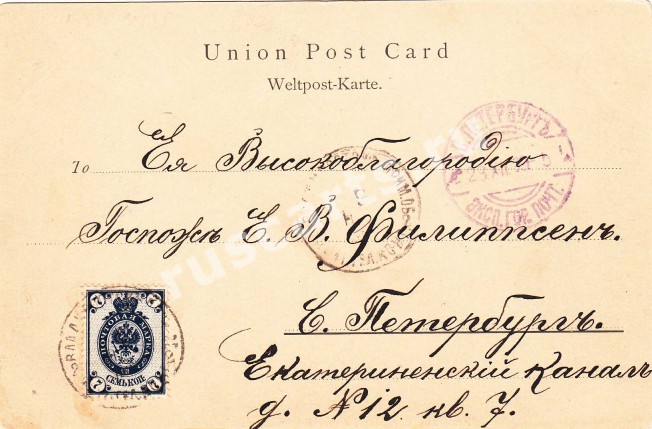 Union Post Card
Weltpost-Karte.
To Ея Высокоблагородію
Госпожѣ Е. В. Филиппсенъ.
С. Петербургъ.
Екатерининскій Каналъ
д. №12 кв. 7.
7 7
ПОЧТОВАЯ МАРКА
СЕМЬ КОП.
7 7
ЭКСП. ГОР. ПОЧТ.